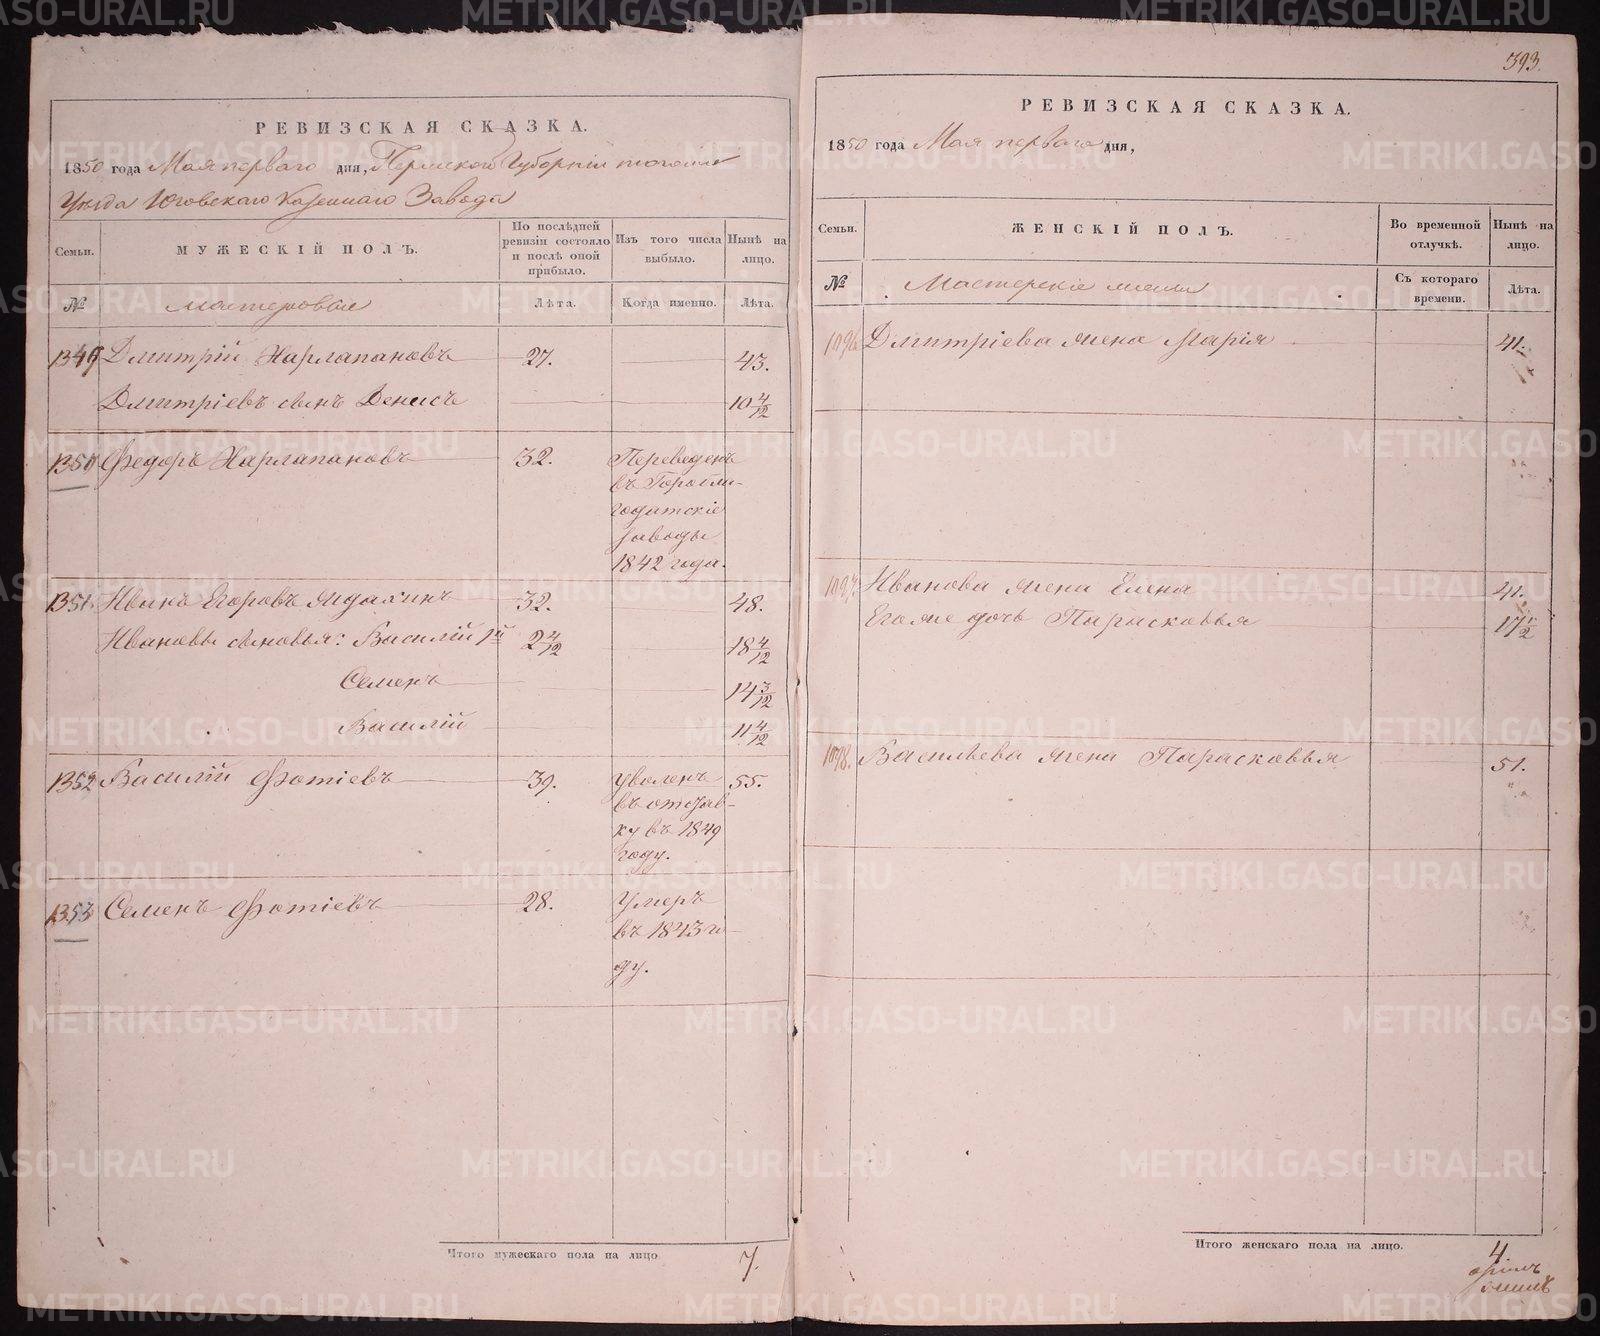 РЕВИЗСКАЯ СКАЗКА.
1850 года Мая перваго дня, Пермской Губерніи тогоже
Уѣзда Юговскаго Казеннаго Завода
Семьи.
МУЖЕСКІЙ ПОЛЪ.
По послѣдней ревизіи состояло и послѣ оной прибыло.
Изъ того числа выбыло.
Нынѣ на лицо.
№
Мастеровые
Лѣта.
Когда именно.
Лѣта.
1349 Дмитрій Харлапановъ 27. 43.
Дмитріевъ сынъ Денисъ 10 4/12
1350 Федоръ Харлапановъ 32. Переведенъ
въ Гороблагодатскіе
заводы
1842 года.
1351 Иванъ Егоровъ 32. 48.
Ивановы сыновья: Василій 1й 2 4/12 18 4/12
Семенъ 14 3/12
Василій 11 4/12
1352 Василій Фотіевъ 39. Уволенъ 55.
въ отстав-
ку въ 1849
году.
1353 Семенъ Фотіевъ 28. Умеръ
въ 1843 го-
ду.
Итого мужескаго пола на лицо 7.
393.
РЕВИЗСКАЯ СКАЗКА.
1850 года Мая перваго дня,
Семьи.
ЖЕНСКІЙ ПОЛЪ.
Во временной отлучкѣ.
Нынѣ на лицо.
№
Мастерскіе жены
Съ котораго времени.
Лѣта.
1096 Дмитріева жена Марія 41.
1097. Иванова жена Елена 41.
Егоже дочь Парасковья 17 1/2
1098. Васильева жена Парасковья 51.
Итого женскаго пола на лицо. 4.
METRIKI.GASO-URAL.RU